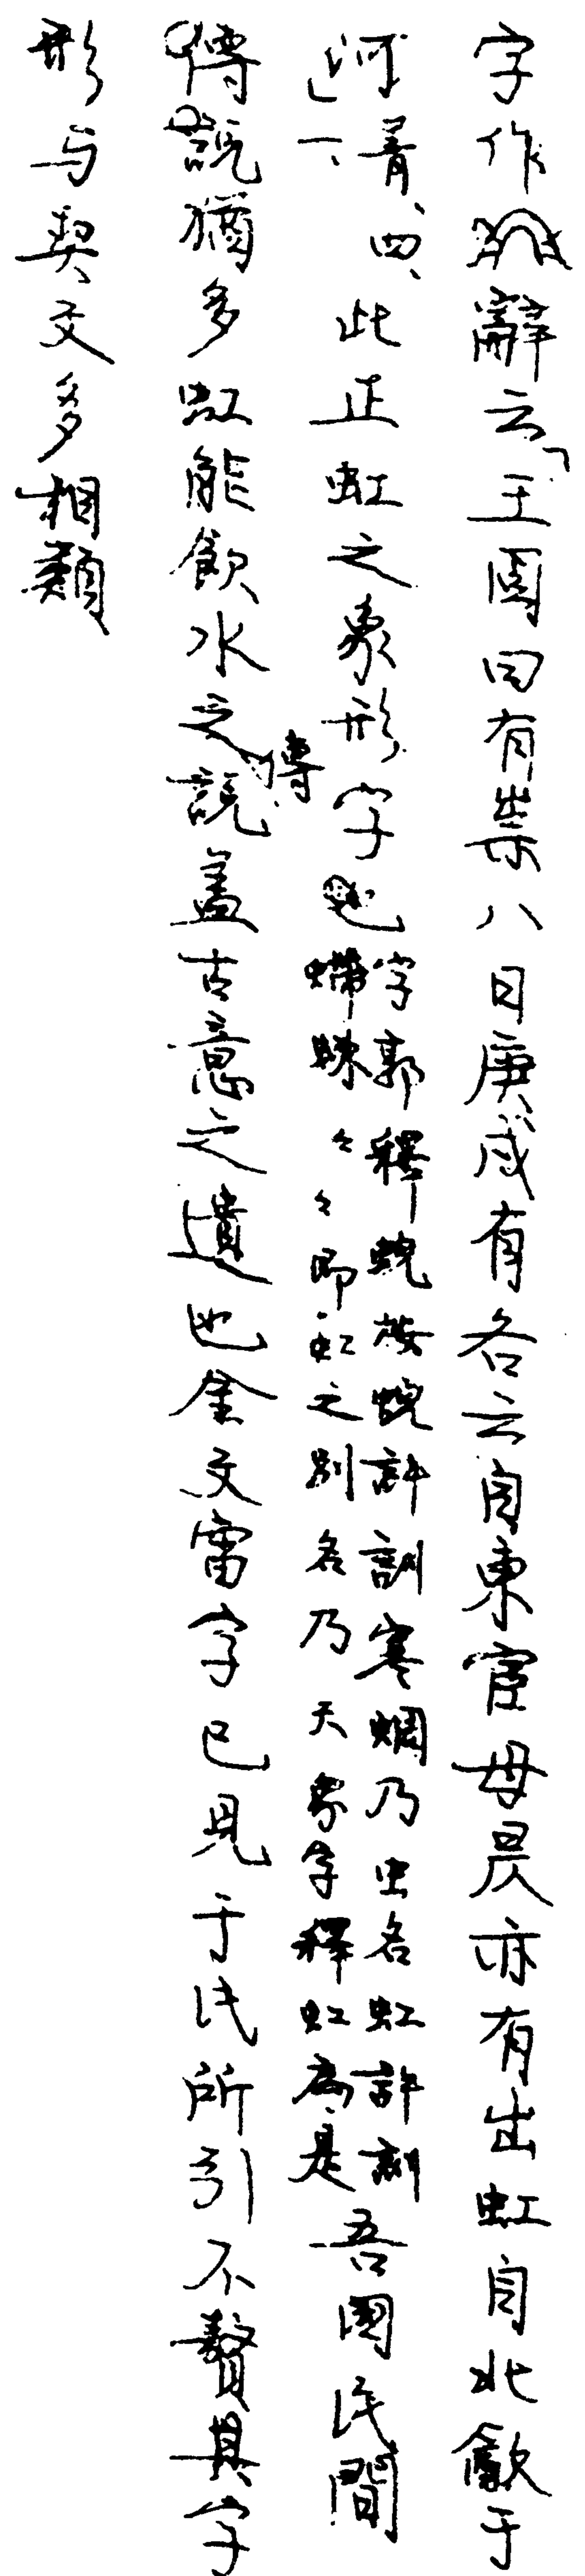 字作辭云「王固曰有祟八日庚戌有各云自東宦母昃亦有出虹自北㱃于
河」菁、四、一、此正虹之象形字也字郭釋蜺按蜺許訓寒蜩乃虫名虹許訓螮蝀々々即虹之別名乃天象字釋虹為是吾國民間
傳說猶多虹能飲水之傳說盖古意之遺也金文雷字已見于氏所引不贅其字
形与契文多相類